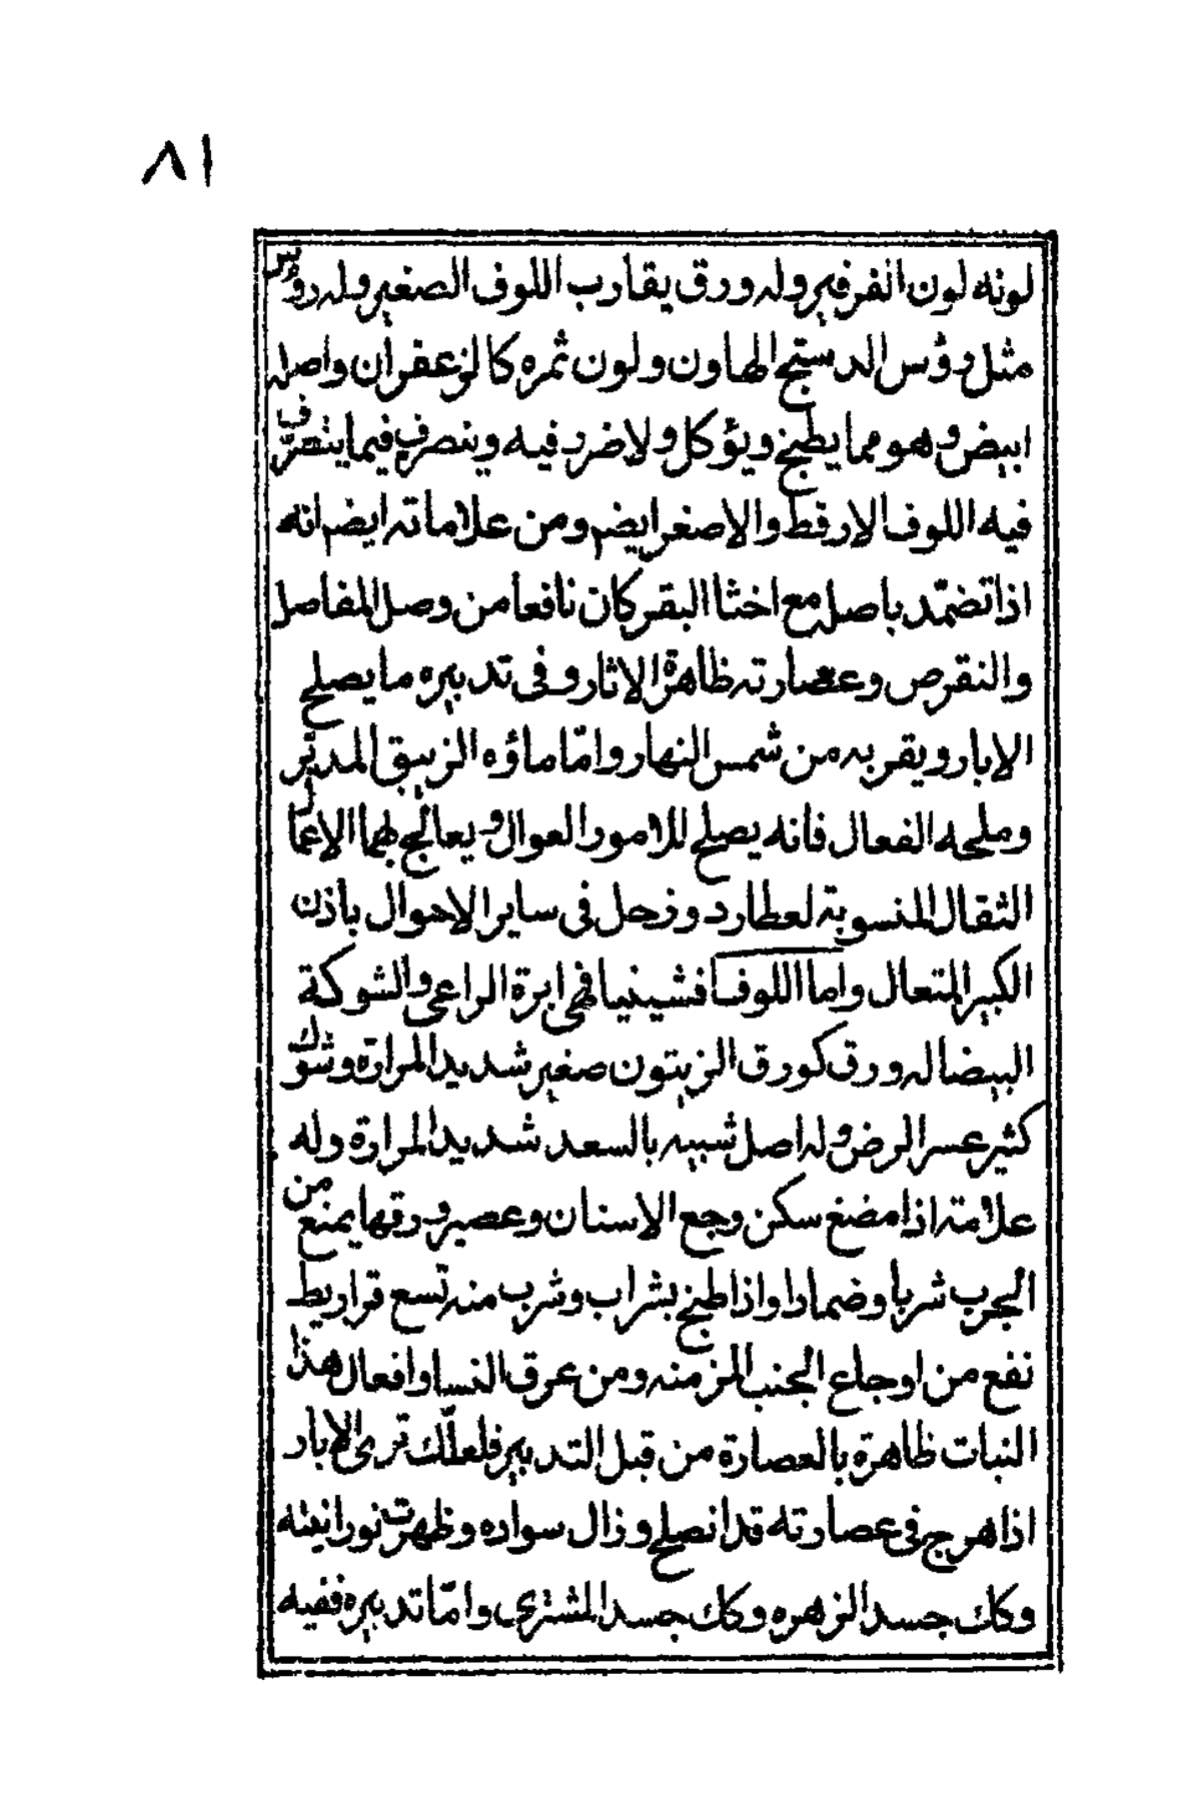 ٨١
لونه لون الفرفير وله ورق يقارب اللوف الصغير وله رؤس
مثل رؤس الدستج الهاون ولون ثمره كالزعفران واصله
ابيض وهو مما يطبخ ويؤكل ولا ضرر فيه وينصرف فيما ينصرّف
فيه اللوف الارقط والاصغر ايضم ومن علاماته ايضم انه
اذا تضمّد باصله مع اخثا البقر كان نافعا من وصل المفاصل
والنقرص وعصارته ظاهرة الاثار وفى تدبيره ما يصلح
الابار ويقربه من شمس النهار وامّا ماؤه الزيبق المدبّر
وملحه الفعال فانه يصلح للامور العوال ويعالج بهما الاعمال
الثقال المنسوبة لعطارد وزحل فى ساير الاحوال باذن
الكبير المتعال واما اللوفافشينيا فهى ابرة الراعى والشوكة
البيضا له ورق كورق الزيتون صغير شديد المرارة وشوك
كثير عسر الرض وله اصل شبيه بالسعد شديد المرارة وله
علامته اذا مضغ سكن وجع الاسنان وعصير ورقها يمنع من
الجرب شربا وضمادا واذا طبخ بشراب وشرب منه تسع قراريط
نفع من اوجاع الجنب المزمنه ومن عرق النسا وافعال هذا
النبات ظاهرة بالعصارة من قبل التدبير فلعلّك ترى الابار
اذا هرج فى عصارته قد انصلح وزال سواده وظهرت نورانيته
وكك جسد الزهره وكك جسد المشترى وامّا تدبيره ففيه